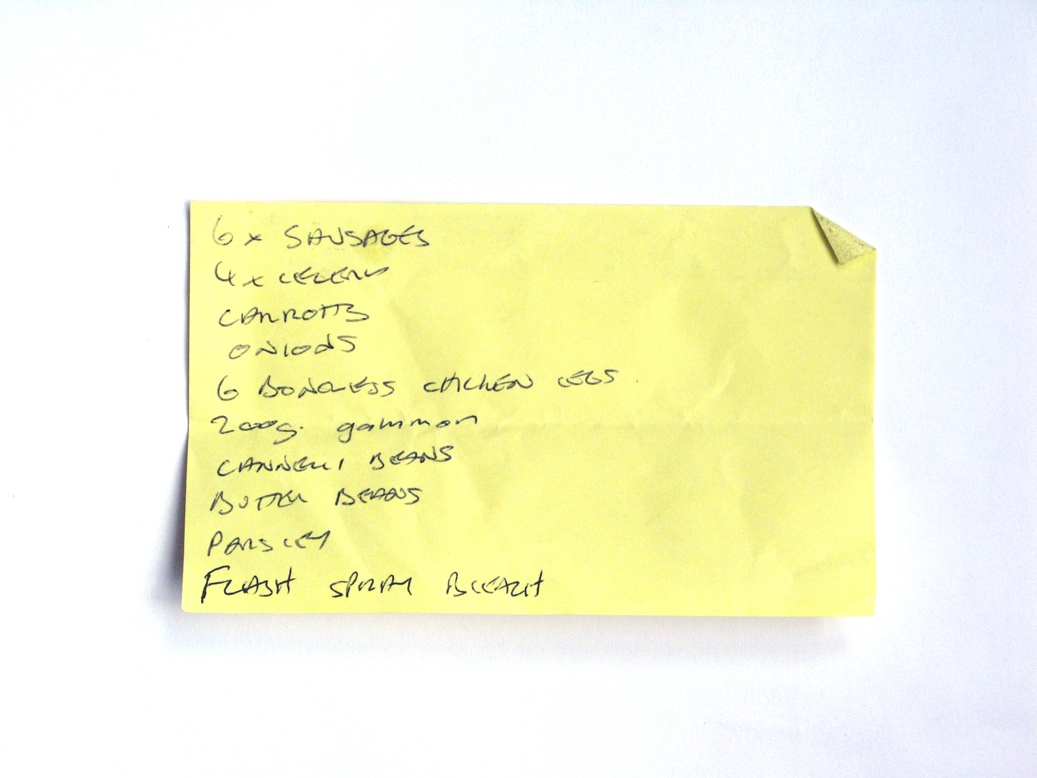 6 x SAUSAGES
4 x CELERY
CARROTTS
ONIONS
6 BONELESS CHICKEN LEGS.
200g. gammon
CANNELLI BEANS
BUTTER BEANS
PARSLEY
FLASH SPRAY BLEACH